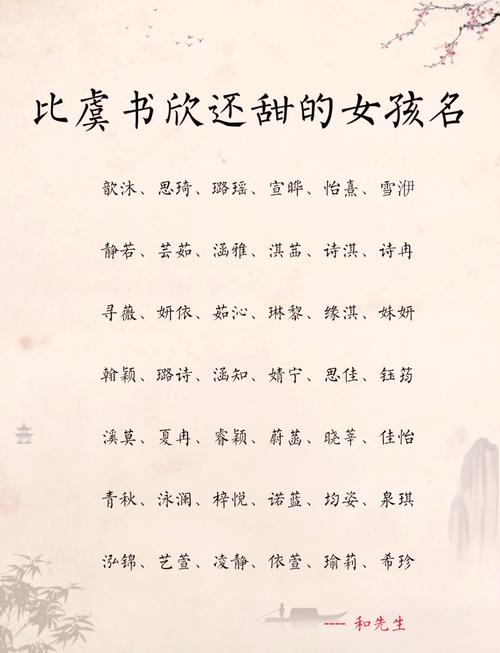 比虞书欣还甜的女孩名
歆沐、思琦、璐瑶、宣晔、怡熹、雪洢
静若、芸茹、涵雅、淇茜、诗淇、诗冉
寻薇、妍依、茹沁、琳黎、缘淇、姝妍
翰颖、璐诗、涵知、婧宁、思佳、钰筠
溪莫、夏冉、睿颖、蔚菡、晓莘、佳怡
青秋、泳澜、梓悦、诺蓝、均姿、泉琪
泓锦、艺萱、凌静、依萱、瑜莉、希珍
---- 和先生